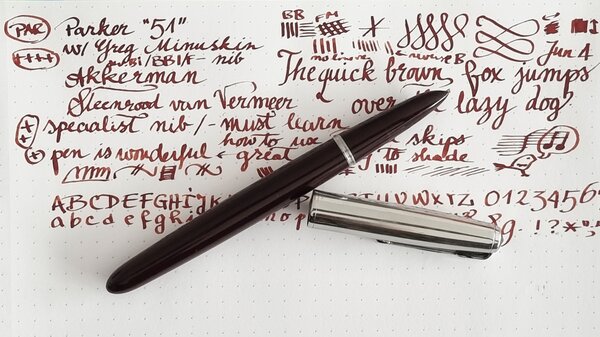 PAR Parker "51"
++++ w/ Greg Minuskin
BB/F- nib
BB FM
no line reverse B
Akkerman
Jun 4
Steenrood van Vermeer
The quick brown fox jumps
over the lazy dog
+ specialist nib /- must learn
how to use skips
+ pen is wonderful & great to shade
ABCDEFGHIJK UVWXYZ 0123456
abcdefghi nop !?*